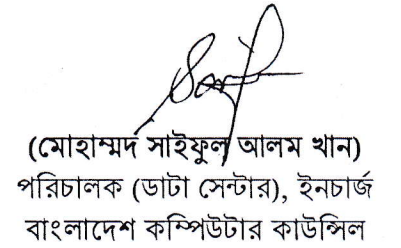 (মোহাম্মদ সাইফুল আলম খান)
পরিচালক (ডাটা সেন্টার), ইনচার্জ
বাংলাদেশ কম্পিউটার কাউন্সিল